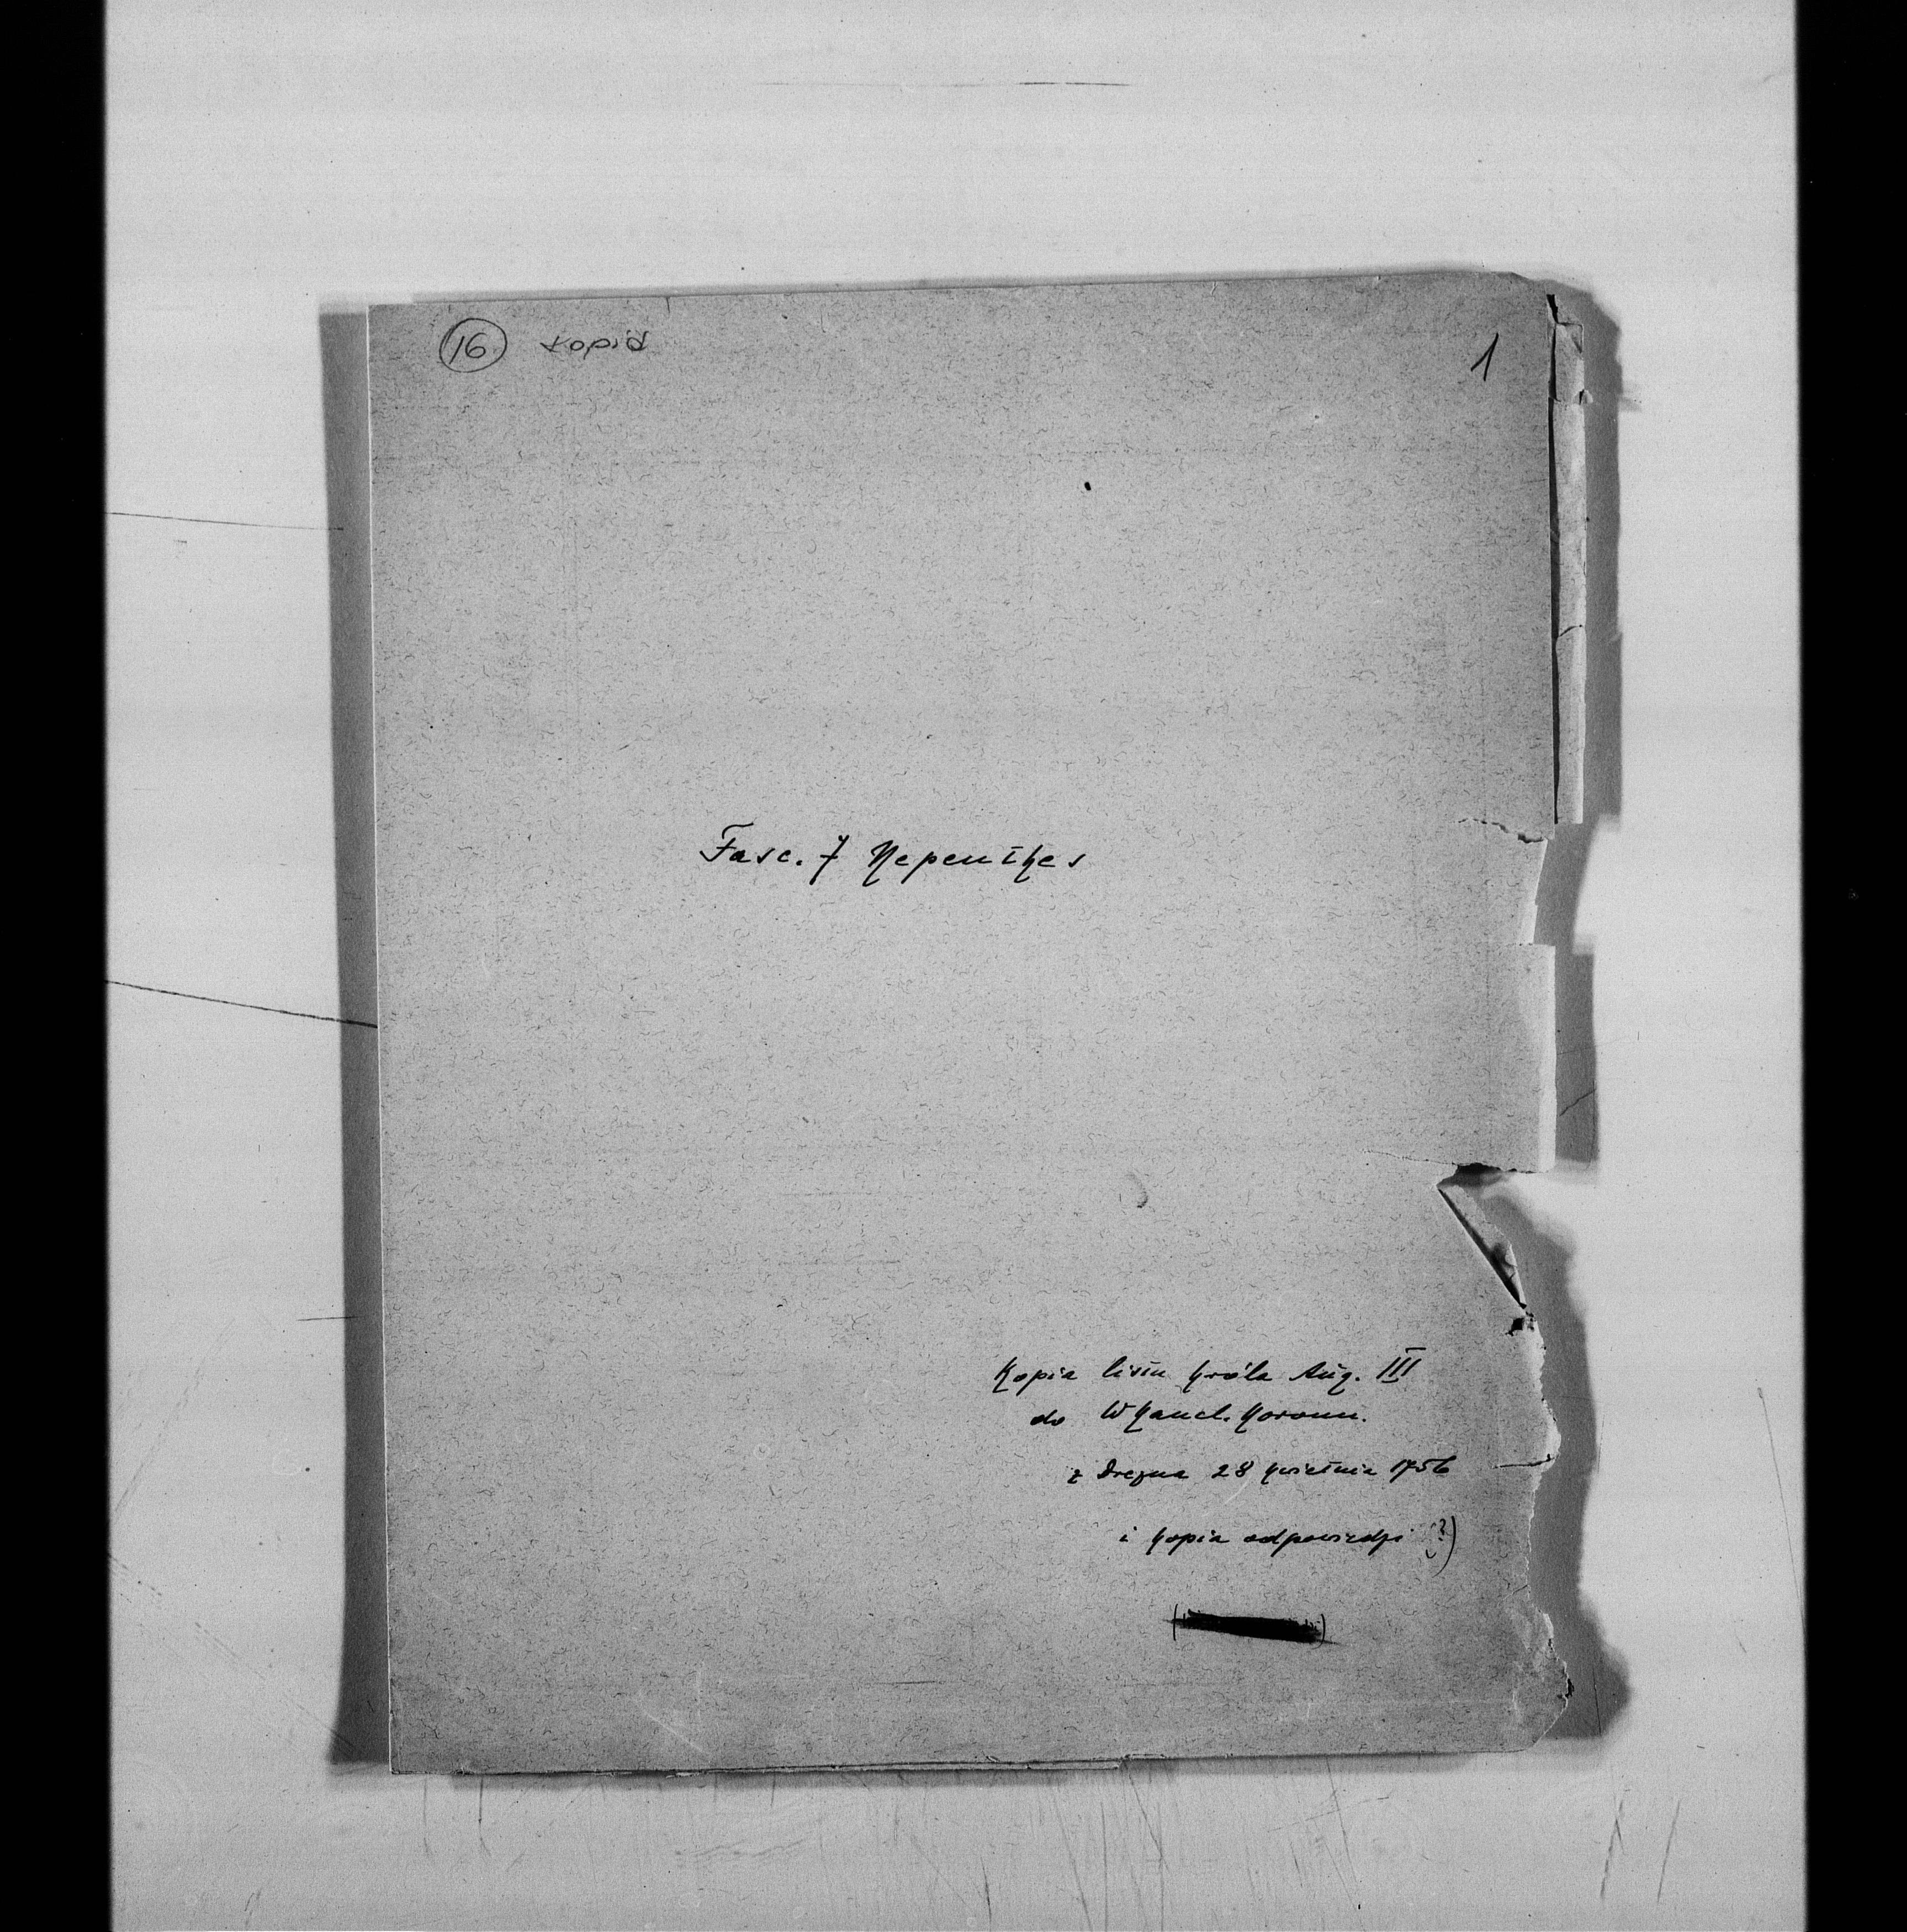 16 kopia
1
Fasc. 7 Nepenthes
Kopia listu Króla Aug. III
do W Kancl. Koronn.
z Drezna 28 kwietnia 1756
i kopia odpowiedzi (?)